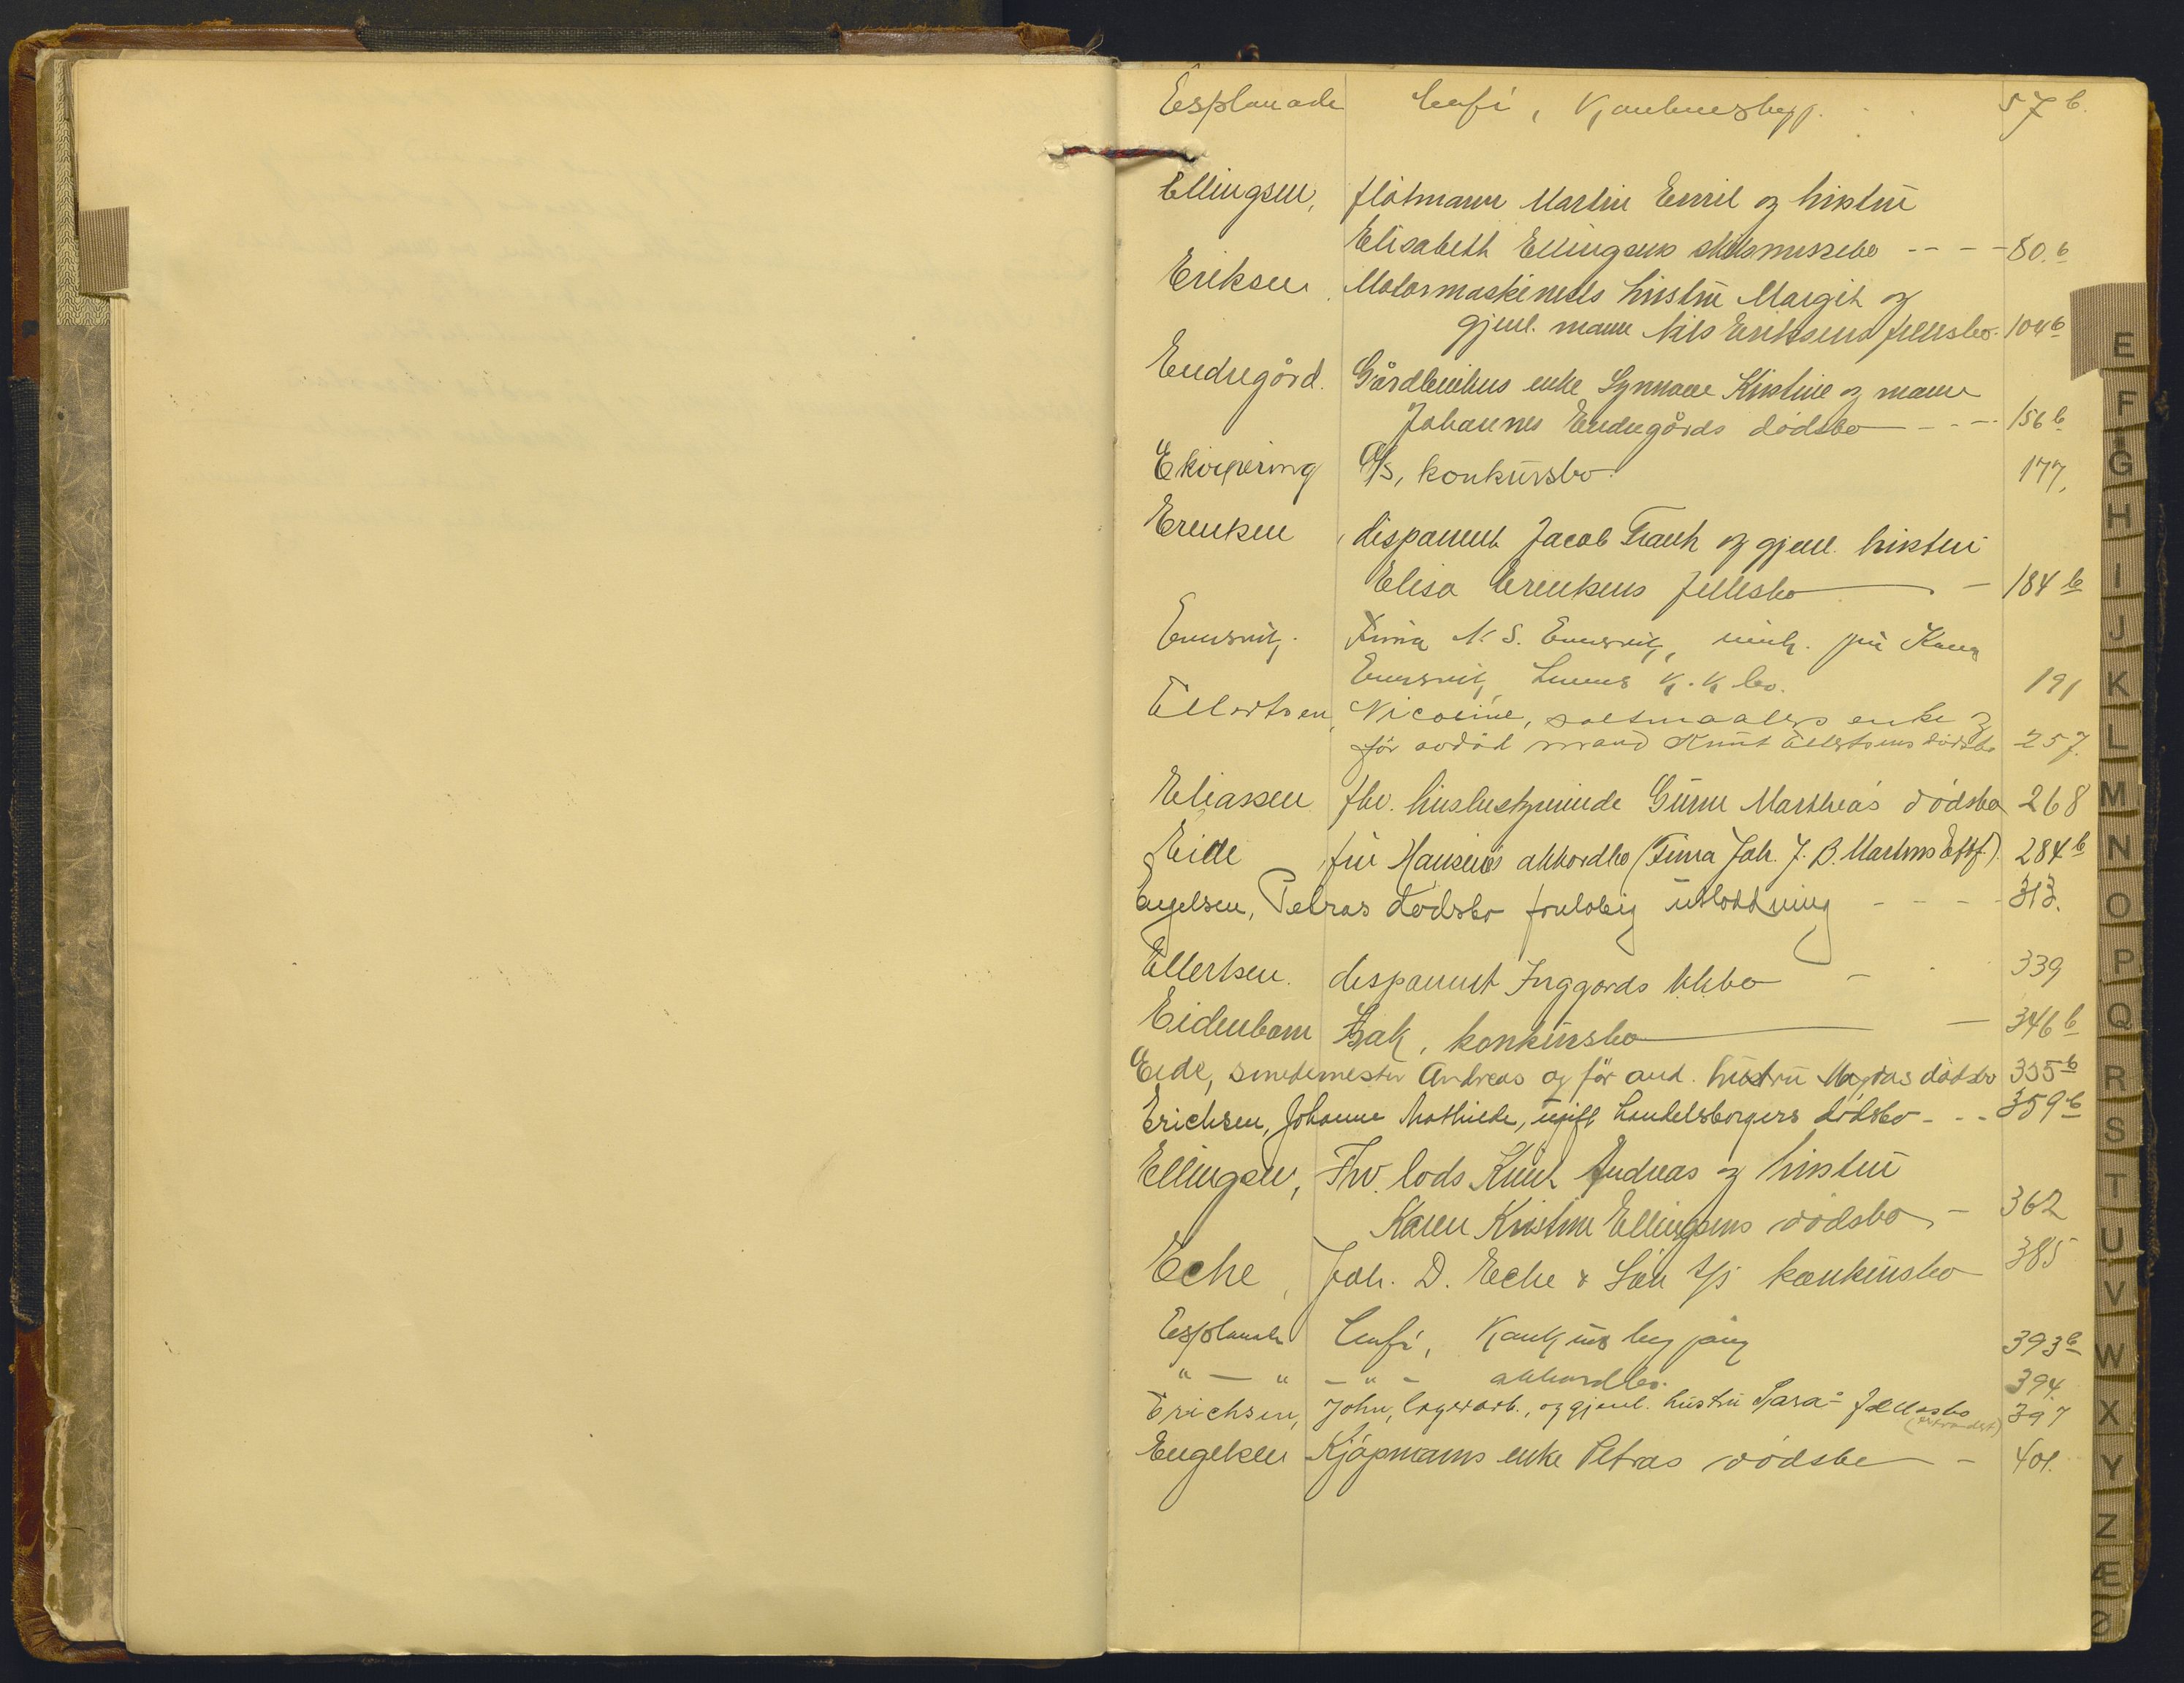 Esplanade Café, Konkursbegj. 57 b.
Ellingsen, flåtmann Martin Emil og hustru
Elisabeth Ellingsens skilsmissebo - - - 80. b
Eriksen Motormaskinists hustru Margit og
gjenl. mann Nils Eriksens fellesbo. 104 b
Endregård. Gårdbrukers enke Synnøve Kristine og mann
Johannes Endregårds dødsbo - - - 156 b
Ekvipering A/S, konkursbo. 177,
Erenksen, disponent Jacob Frank og gjenl. hustru
Elisa Erenksens fellesbo - 184 b
Firma N. S.
191
Ellertsen, Nicoline, saltmaalers enke og
før avdød mand Knut Ellertsens dødsbo 257.
Eliassen fhv. husbestyrerinde Gurine Marthea's dødsbo 268
Eide, fru Hansine's akkordbo (Firma Joh. J. B. Martens Eftf.). 284 b
Engelsen, Petras dødsbo foreløbig utloddning - - - - 313.
Ellertsen. disponent Inggards bo - 339
Eidenbom Isak, konkursbo - 346 b
Eide, smedemester Andreas og før avd. hustru Magdas dødsbo 355 b
Erichsen, Johanne Mathilde, ugift handelsborgers dødsbo - - - 359 b
Ellingsen, Fhv. lods Knut Andreas og hustru
Karen Kristine Ellingsens dødsbo, - 362
Eche, Joh. D. Eche & Søn A/S konkursbo 385
Esplanade Café, Konkursbegjæring 393 b
" — " - " - akkordbo. 394.
Erichsen, John, lagerarb., og gjenl. hustru Sara's fellesbo 397
Engelsen Kjøpmanns enke Petras dødsbo - 401.
E
F
G
H
I
J
K
L
M
N
O
P
Q
R
S
T
U
V
W
X
Y
Z
Æ
Ø